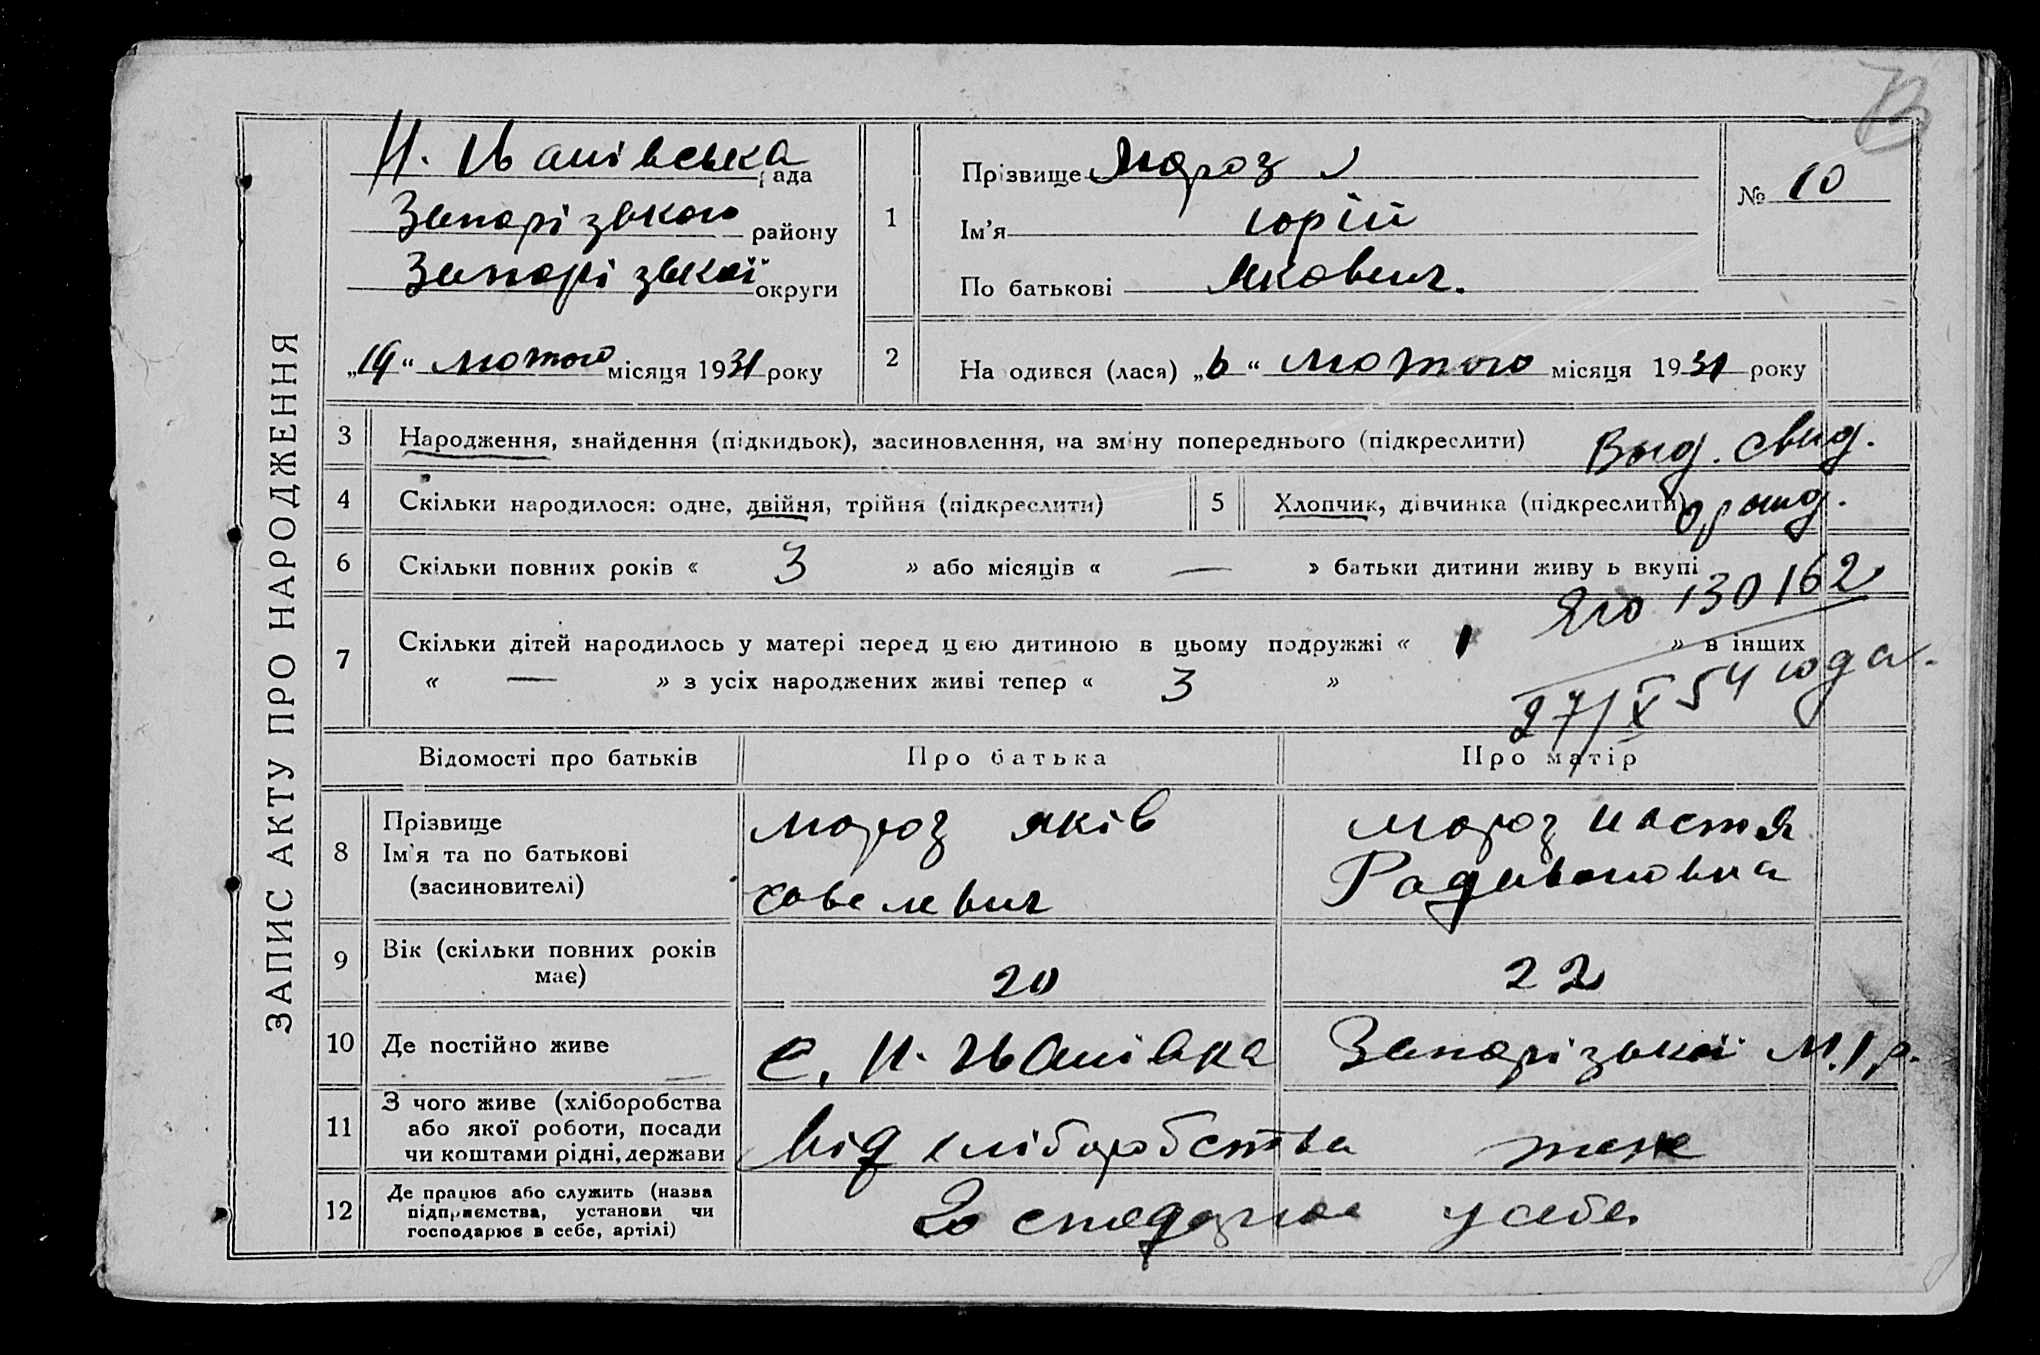 ЗАПИС АКТУ ПРО НАРОДЖЕННЯ
Н. Іванівська рада
Запорізького району
Запорізької округи
„14“ лютого місяця 1931 року
1 Прізвище Мороз
Ім'я Юрій
По батькові Якович.
№ 10
2 На одився (лася) „6“ лютого місяця 1931 року
3 Народження, знайдення (підкидьок), засиновлення, на зміну попереднього (підкреслити)
Выд. свид.
4 Скільки народилося: одне, двійня, трійня (підкреслити) 5 Хлопчик, дівчинка (підкреслити)
6 Скільки повних років « 3 » або місяців « — » батьки дитини живу ь вкупі
130162
7 Скільки дітей народилось у матері перед цією дитиною в цьому подружжі « 1 » в інших
« — » з усіх народжених живі тепер « 3 »
27/X 54 года.
Відомості про батьків Про батька Про матір
8 Прізвище
Ім'я та по батькові
(засиновителі)
Мороз Яків
Савелевич
Мороз Настя
Радивоновна
9 Вік (скільки повних років
має)
20 22
10 Де постійно живе с. Н-Іванівка Запорізької М.Р.
11 З чого живе (хліборобства
або якої роботи, посади
чи коштами рідні, держави
від хліборобства теж
12 Де працює або служить (назва
підприємства, установи чи
господарює в себе, артілі)
у себе